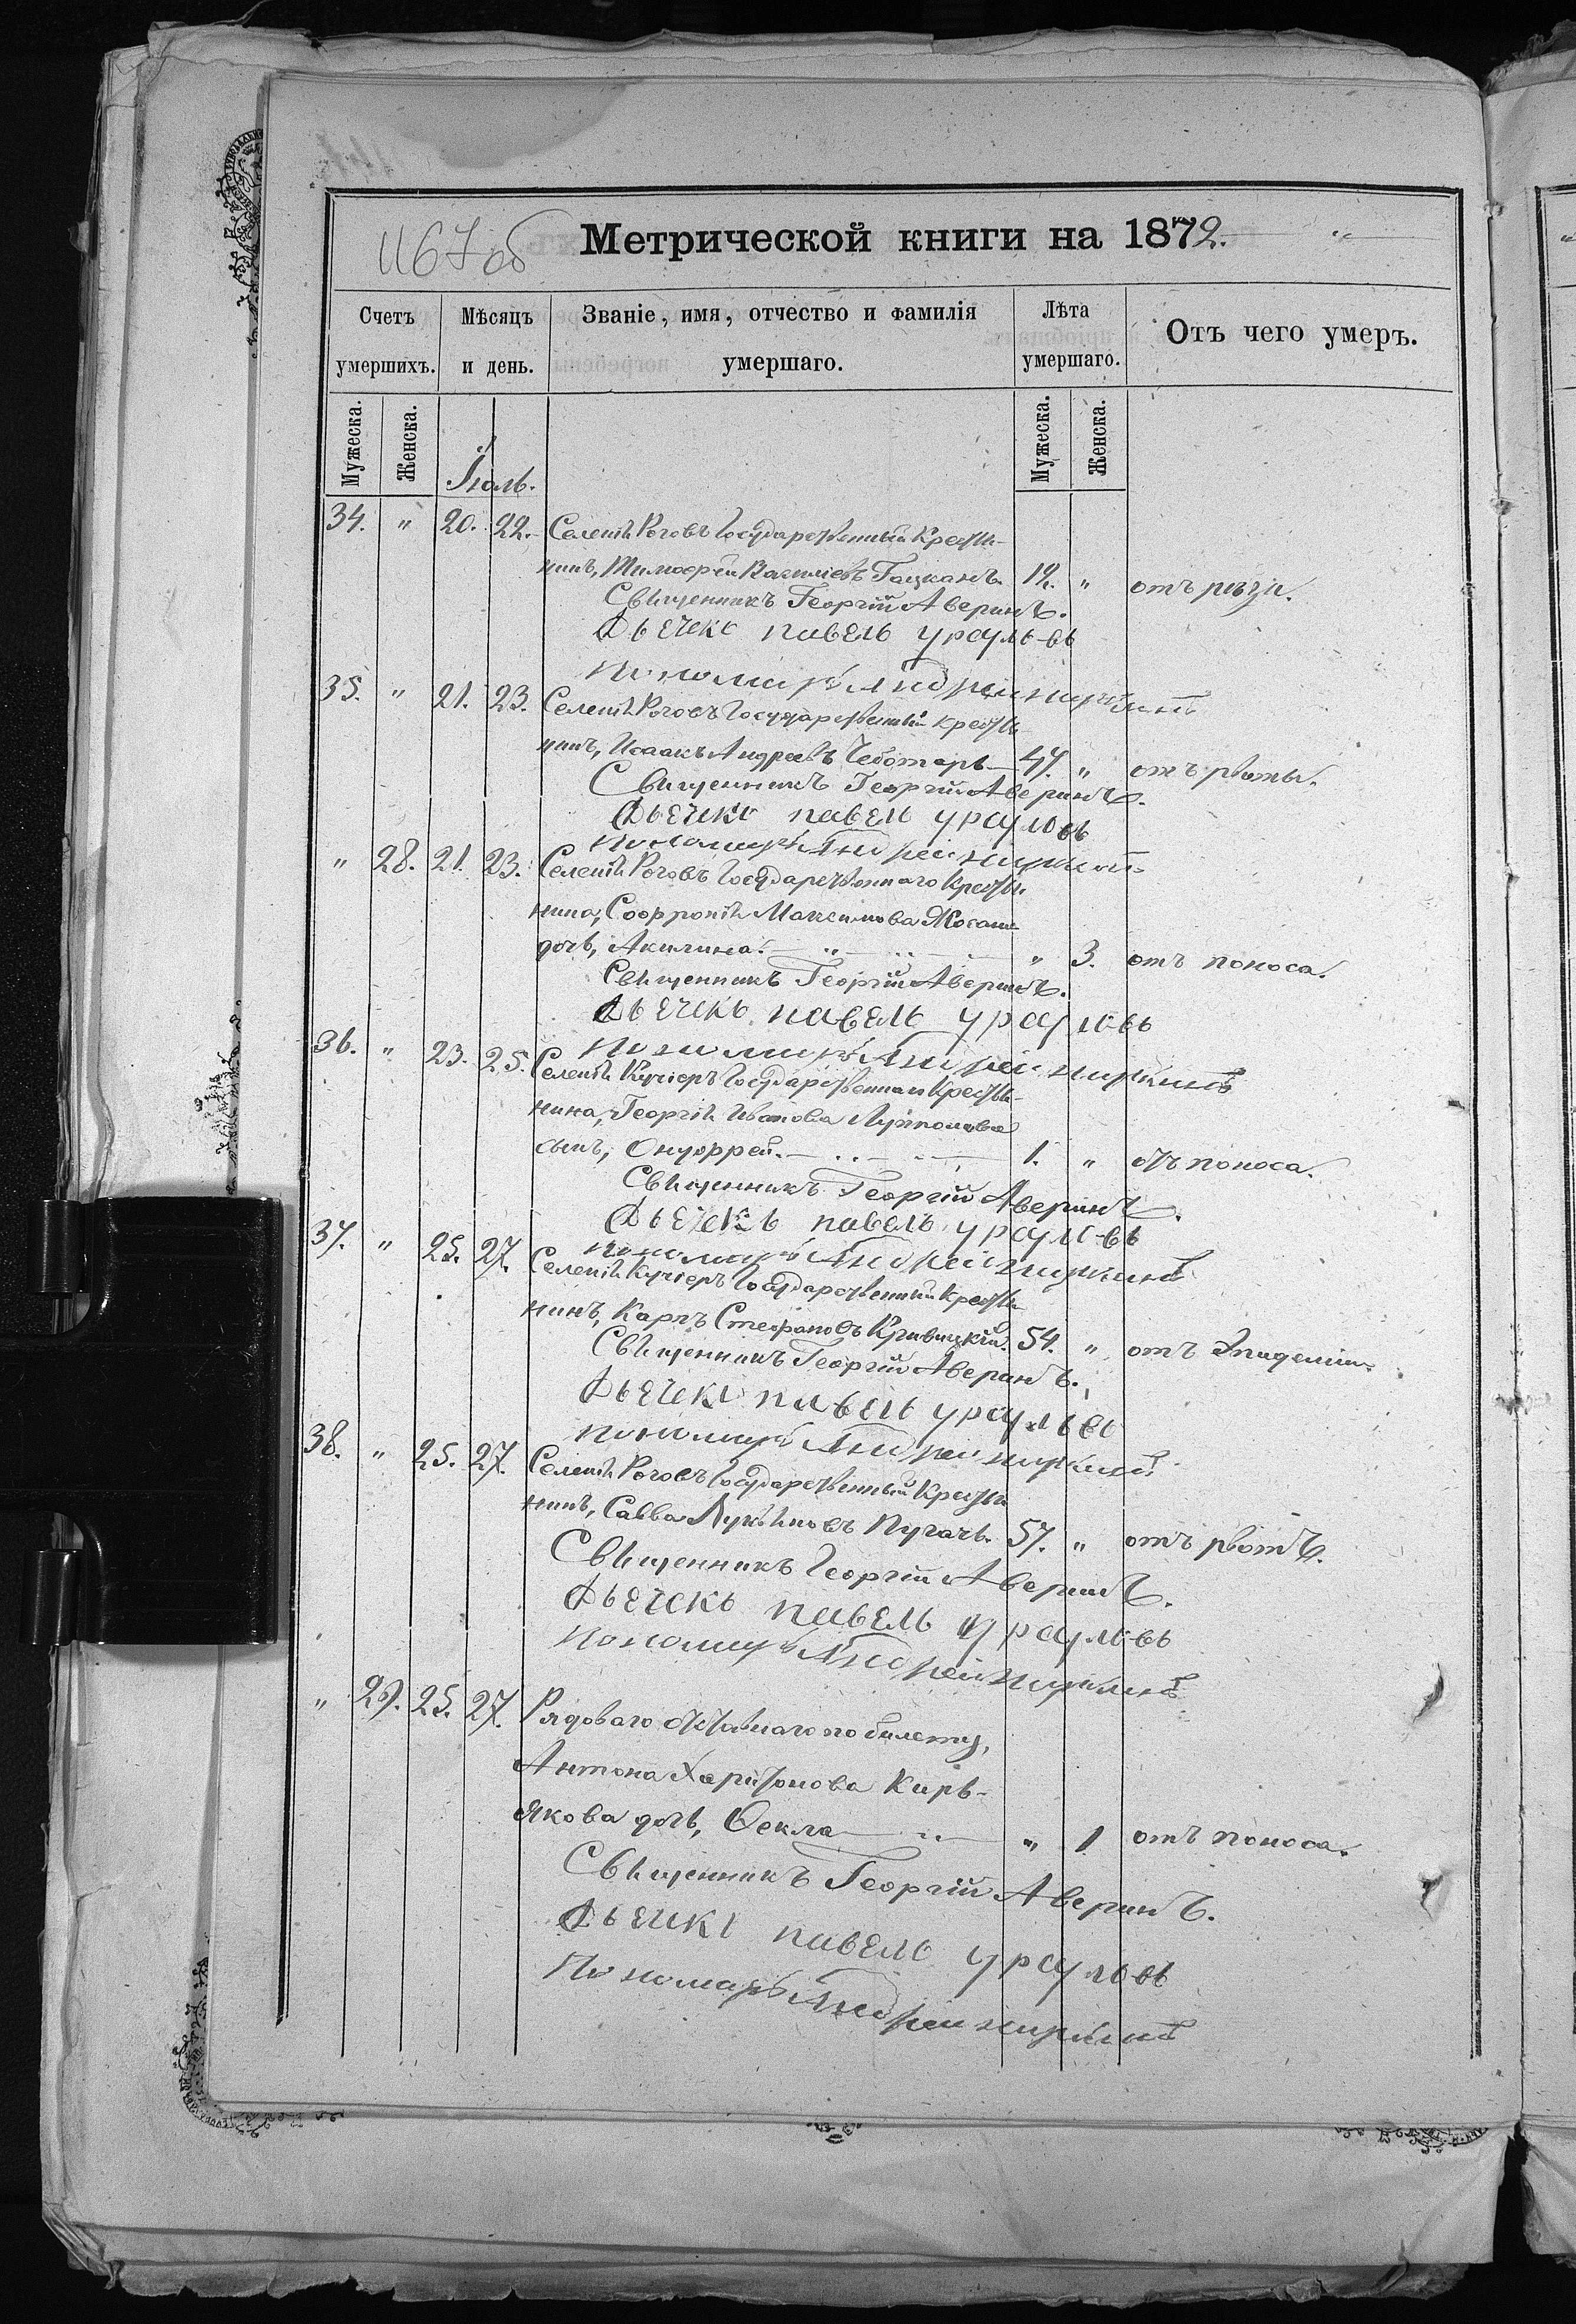 1167 об
Метрической книги на 1872.
Счетъ умершихъ.
Мѣсяцъ и день.
Званіе, имя, отчество и фамилія умершаго.
Лѣта умершаго.
Отъ чего умеръ.
Мужеска.
Женска.
Іюль.
Мужеска.
Женска.
34. " 20. 22. Селенія Роговъ Государственный Крестья-
нинъ, Тимофей Василіевъ Гацканъ. 12. " отъ рѣзи.
Священникъ Георгій Аверинъ.
Дьечекъ павелъ урсуловъ
Пономарь Андрей
35. " 21. 23. Селенія Роговъ Государственный крестья-
нинъ, Исаакъ Андреевъ Чеботарь 47. " отъ рвоты.
Священникъ Георгій Аверинъ.
Дьечекъ павелъ урсуловъ
Пономарь Андрей
" 28. 21. 23. Селенія Роговъ Государственнаго Крестья-
нина, Софронія Максимова
дочь, Акилина. " 3. отъ поноса.
Священникъ Георгій Аверинъ.
Дьечекъ павелъ урсуловъ
Пономарь Андрей
36. " 23. 25. Селенія Кучіеръ Государственнаго Крестья-
нина, Георгія Иванова
сынъ, Онуфрей. 1. " отъ поноса.
Священникъ Георгій Аверинъ.
Дьечекъ павелъ урсуловъ
Пономарь Андрей
37. " 25. 27. Селенія Кучіеръ Государственный Крестья-
нинъ, Карпъ Стефановъ Кривицкій. 54. " отъ Эпидеміи.
Священникъ Георгій Аверинъ.
Дьечекъ павелъ урсуловъ
Пономарь Андрей
38. " 25. 27. Селенія Роговъ Государственный Крестья-
нинъ, Савва Лукіановъ Пугачь. 57. " отъ рвотъ.
Священникъ Георгій Аверинъ.
Дьечекъ павелъ урсуловъ
Пономарь Андрей
" 29. 25. 27. Рядоваго отставнаго по билету,
Антона Харитонова Кирь-
якова дочь, Ѳекла " 1 отъ поноса.
Священникъ Георгій Аверинъ.
Дьечекъ павелъ урсуловъ
Пономарь Андрей